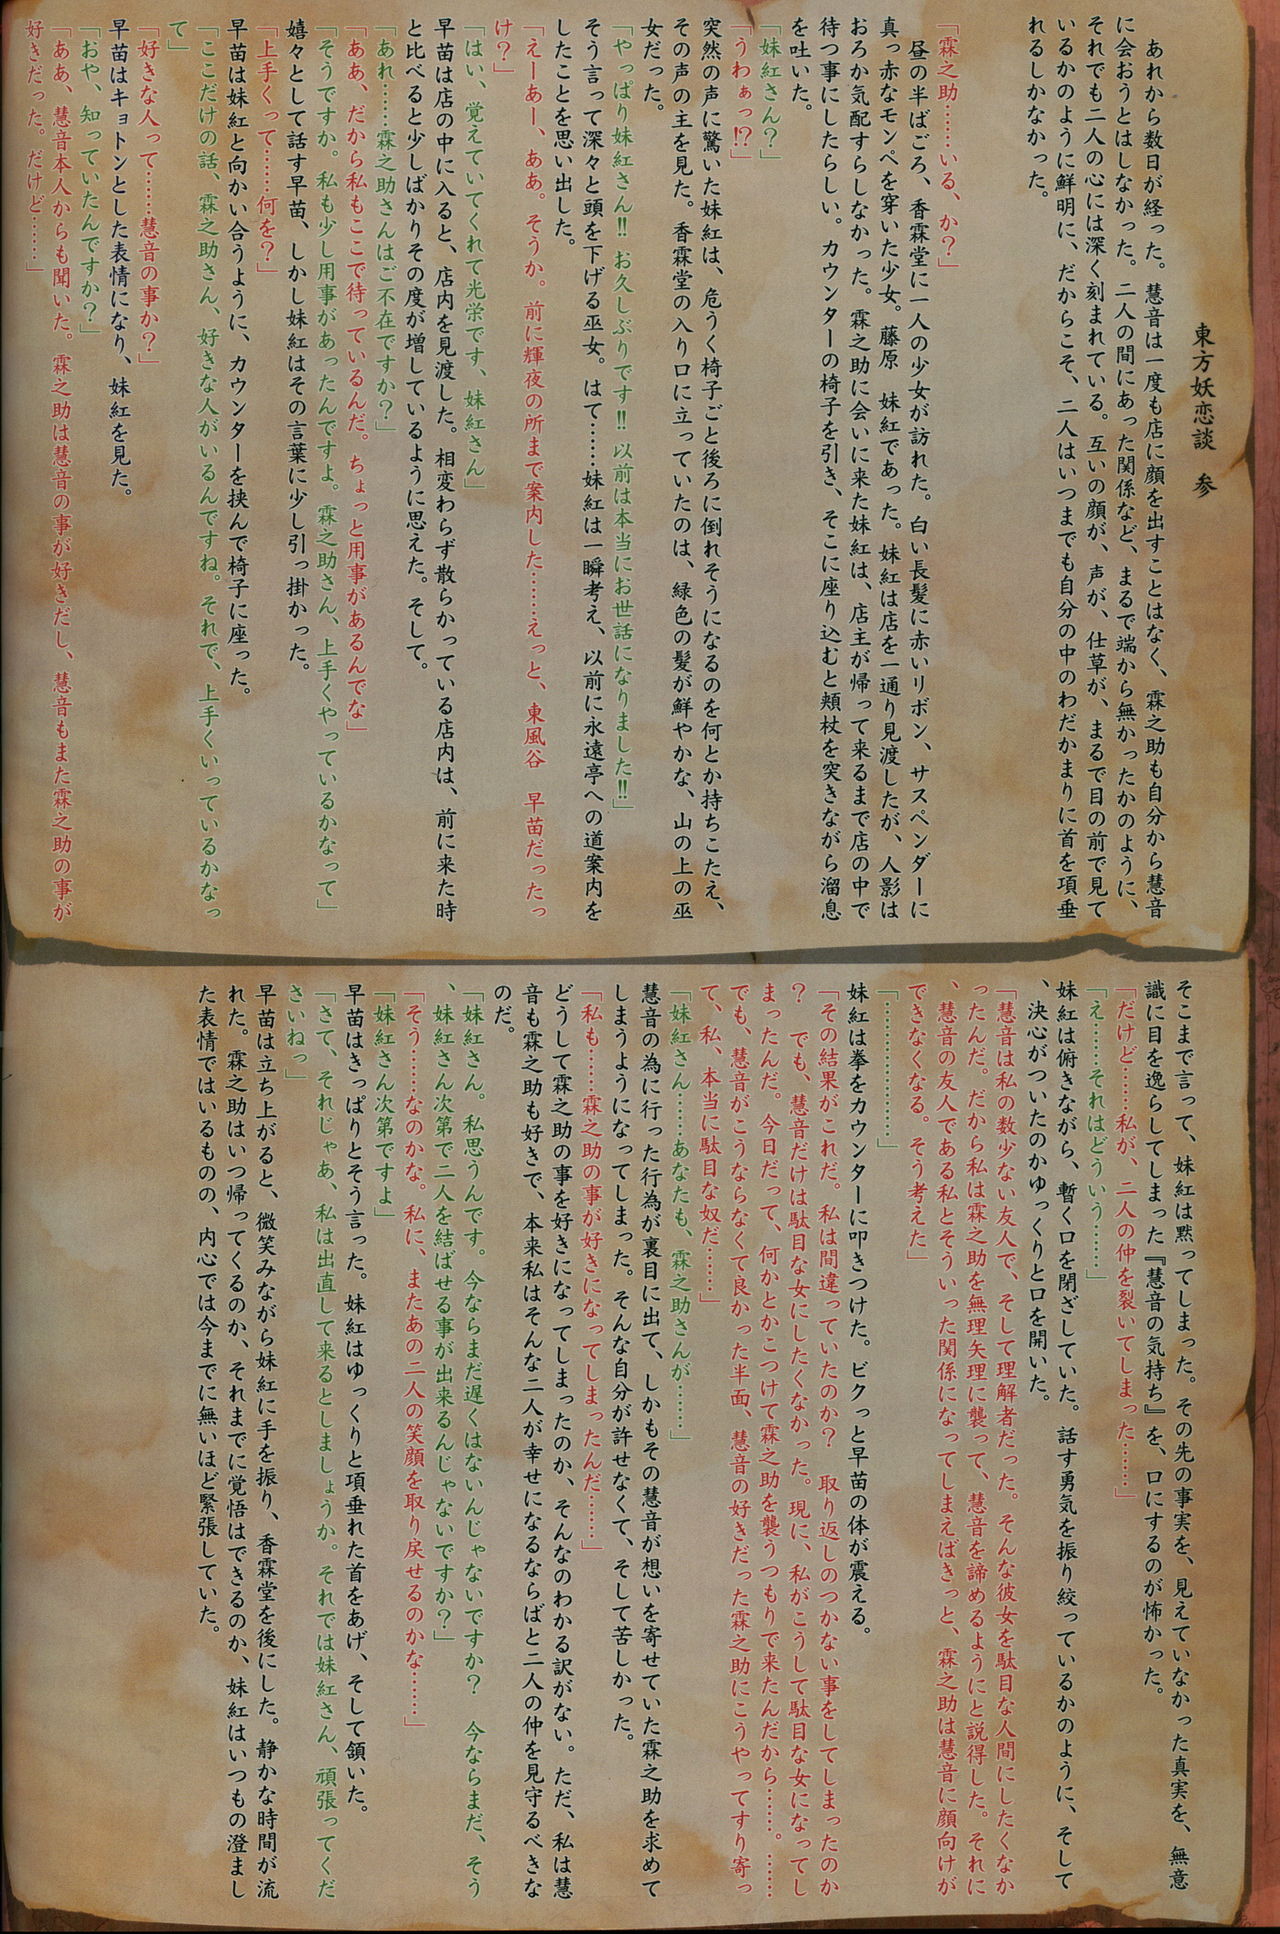 東方妖恋談　参
あれから数日が経った。慧音は一度も店に顔を出すことはなく、霖之助も自分から慧音
に会おうとはしなかった。二人の間にあった関係など、まるで端から無かったかのように、
それでも二人の心には深く刻まれている。互いの顔が、声が、仕草が、まるで目の前で見て
いるかのように鮮明に、だからこそ、二人はいつまでも自分の中のわだかまりに首を項垂
れるしかなかった。
「霖之助……いる、か？」
昼の半ばごろ、香霖堂に一人の少女が訪れた。白い長髪に赤いリボン、サスペンダーに
真っ赤なモンペを穿いた少女。藤原　妹紅であった。妹紅は店を一通り見渡したが、人影は
おろか気配すらしなかった。霖之助に会いに来た妹紅は、店主が帰って来るまで店の中で
待つ事にしたらしい。カウンターの椅子を引き、そこに座り込むと頬杖を突きながら溜息
を吐いた。
「妹紅さん？」
「うわぁっ⁉」
突然の声に驚いた妹紅は、危うく椅子ごと後ろに倒れそうになるのを何とか持ちこたえ、
その声の主を見た。香霖堂の入り口に立っていたのは、緑色の髪が鮮やかな、山の上の巫
女だった。
「やっぱり妹紅さん‼お久しぶりです‼以前は本当にお世話になりました‼」
そう言って深々と頭を下げる巫女。はて……妹紅は一瞬考え、以前に永遠亭への道案内を
したことを思い出した。
「えーあー、ああ。そうか。前に輝夜の所まで案内した……えっと、東風谷　早苗だったっ
け？」
「はい、覚えていてくれて光栄です、妹紅さん」
早苗は店の中に入ると、店内を見渡した。相変わらず散らかっている店内は、前に来た時
と比べると少しばかりその度が増しているように思えた。そして。
「あれ……霖之助さんはご不在ですか？」
「ああ、だから私もここで待っているんだ。ちょっと用事があるんでな」
「そうですか。私も少し用事があったんですよ。霖之助さん、上手くやっているかなって」
嬉々として話す早苗、しかし妹紅はその言葉に少し引っ掛かった。
「上手くって……何を？」
早苗は妹紅と向かい合うように、カウンターを挟んで椅子に座った。
「ここだけの話、霖之助さん、好きな人がいるんですね。それで、上手くいっているかなっ
て」
「好きな人って……慧音の事か？」
早苗はキョトンとした表情になり、妹紅を見た。
「おや、知っていたんですか？」
「ああ、慧音本人からも聞いた。霖之助は慧音の事が好きだし、慧音もまた霖之助の事が
好きだった。だけど……」
そこまで言って、妹紅は黙ってしまった。その先の事実を、見えていなかった真実を、無意
識に目を逸らしてしまった『慧音の気持ち』を、口にするのが怖かった。
「だけど……私が、二人の仲を裂いてしまった……」
「え……それはどういう……」
妹紅は俯きながら、暫く口を閉ざしていた。話す勇気を振り絞っているかのように、そして
、決心がついたのかゆっくりと口を開いた。
「慧音は私の数少ない友人で、そして理解者だった。そんな彼女を駄目な人間にしたくなか
ったんだ。だから私は霖之助を無理矢理に襲って、慧音を諦めるようにと説得した。それに
、慧音の友人である私とそういった関係になってしまえばきっと、霖之助は慧音に顔向けが
できなくなる。そう考えた」
「………………」
妹紅は拳をカウンターに叩きつけた。ビクっと早苗の体が震える。
「その結果がこれだ。私は間違っていたのか？　取り返しのつかない事をしてしまったのか
？　でも、慧音だけは駄目な女にしたくなかった。現に、私がこうして駄目な女になってし
まったんだ。今日だって、何かとかこつけて霖之助を襲うつもりで来たんだから……。……
でも、慧音がこうならなくて良かった半面、慧音の好きだった霖之助にこうやってすり寄っ
て、私、本当に駄目な奴だ……」
「妹紅さん……あなたも、霖之助さんが……」
慧音の為に行った行為が裏目に出て、しかもその慧音が想いを寄せていた霖之助を求めて
しまうようになってしまった。そんな自分が許せなくて、そして苦しかった。
「私も……霖之助の事が好きになってしまったんだ……」
どうして霖之助の事を好きになってしまったのか、そんなのわかる訳がない。ただ、私は慧
音も霖之助も好きで、本来私はそんな二人が幸せになるならばと二人の仲を見守るべきな
のだ。
「妹紅さん。私思うんです。今ならまだ遅くはないんじゃないですか？　今ならまだ、そう
、妹紅さん次第で二人を結ばせる事が出来るんじゃないですか？」
「そう……なのかな。私に、またあの二人の笑顔を取り戻せるのかな……」
「妹紅さん次第ですよ」
早苗はきっぱりとそう言った。妹紅はゆっくりと項垂れた首をあげ、そして頷いた。
「さて、それじゃあ、私は出直して来るとしましょうか。それでは妹紅さん、頑張ってくだ
さいねっ」
早苗は立ち上がると、微笑みながら妹紅に手を振り、香霖堂を後にした。静かな時間が流
れた。霖之助はいつ帰ってくるのか、それまでに覚悟はできるのか、妹紅はいつもの澄まし
た表情ではいるものの、内心では今までに無いほど緊張していた。